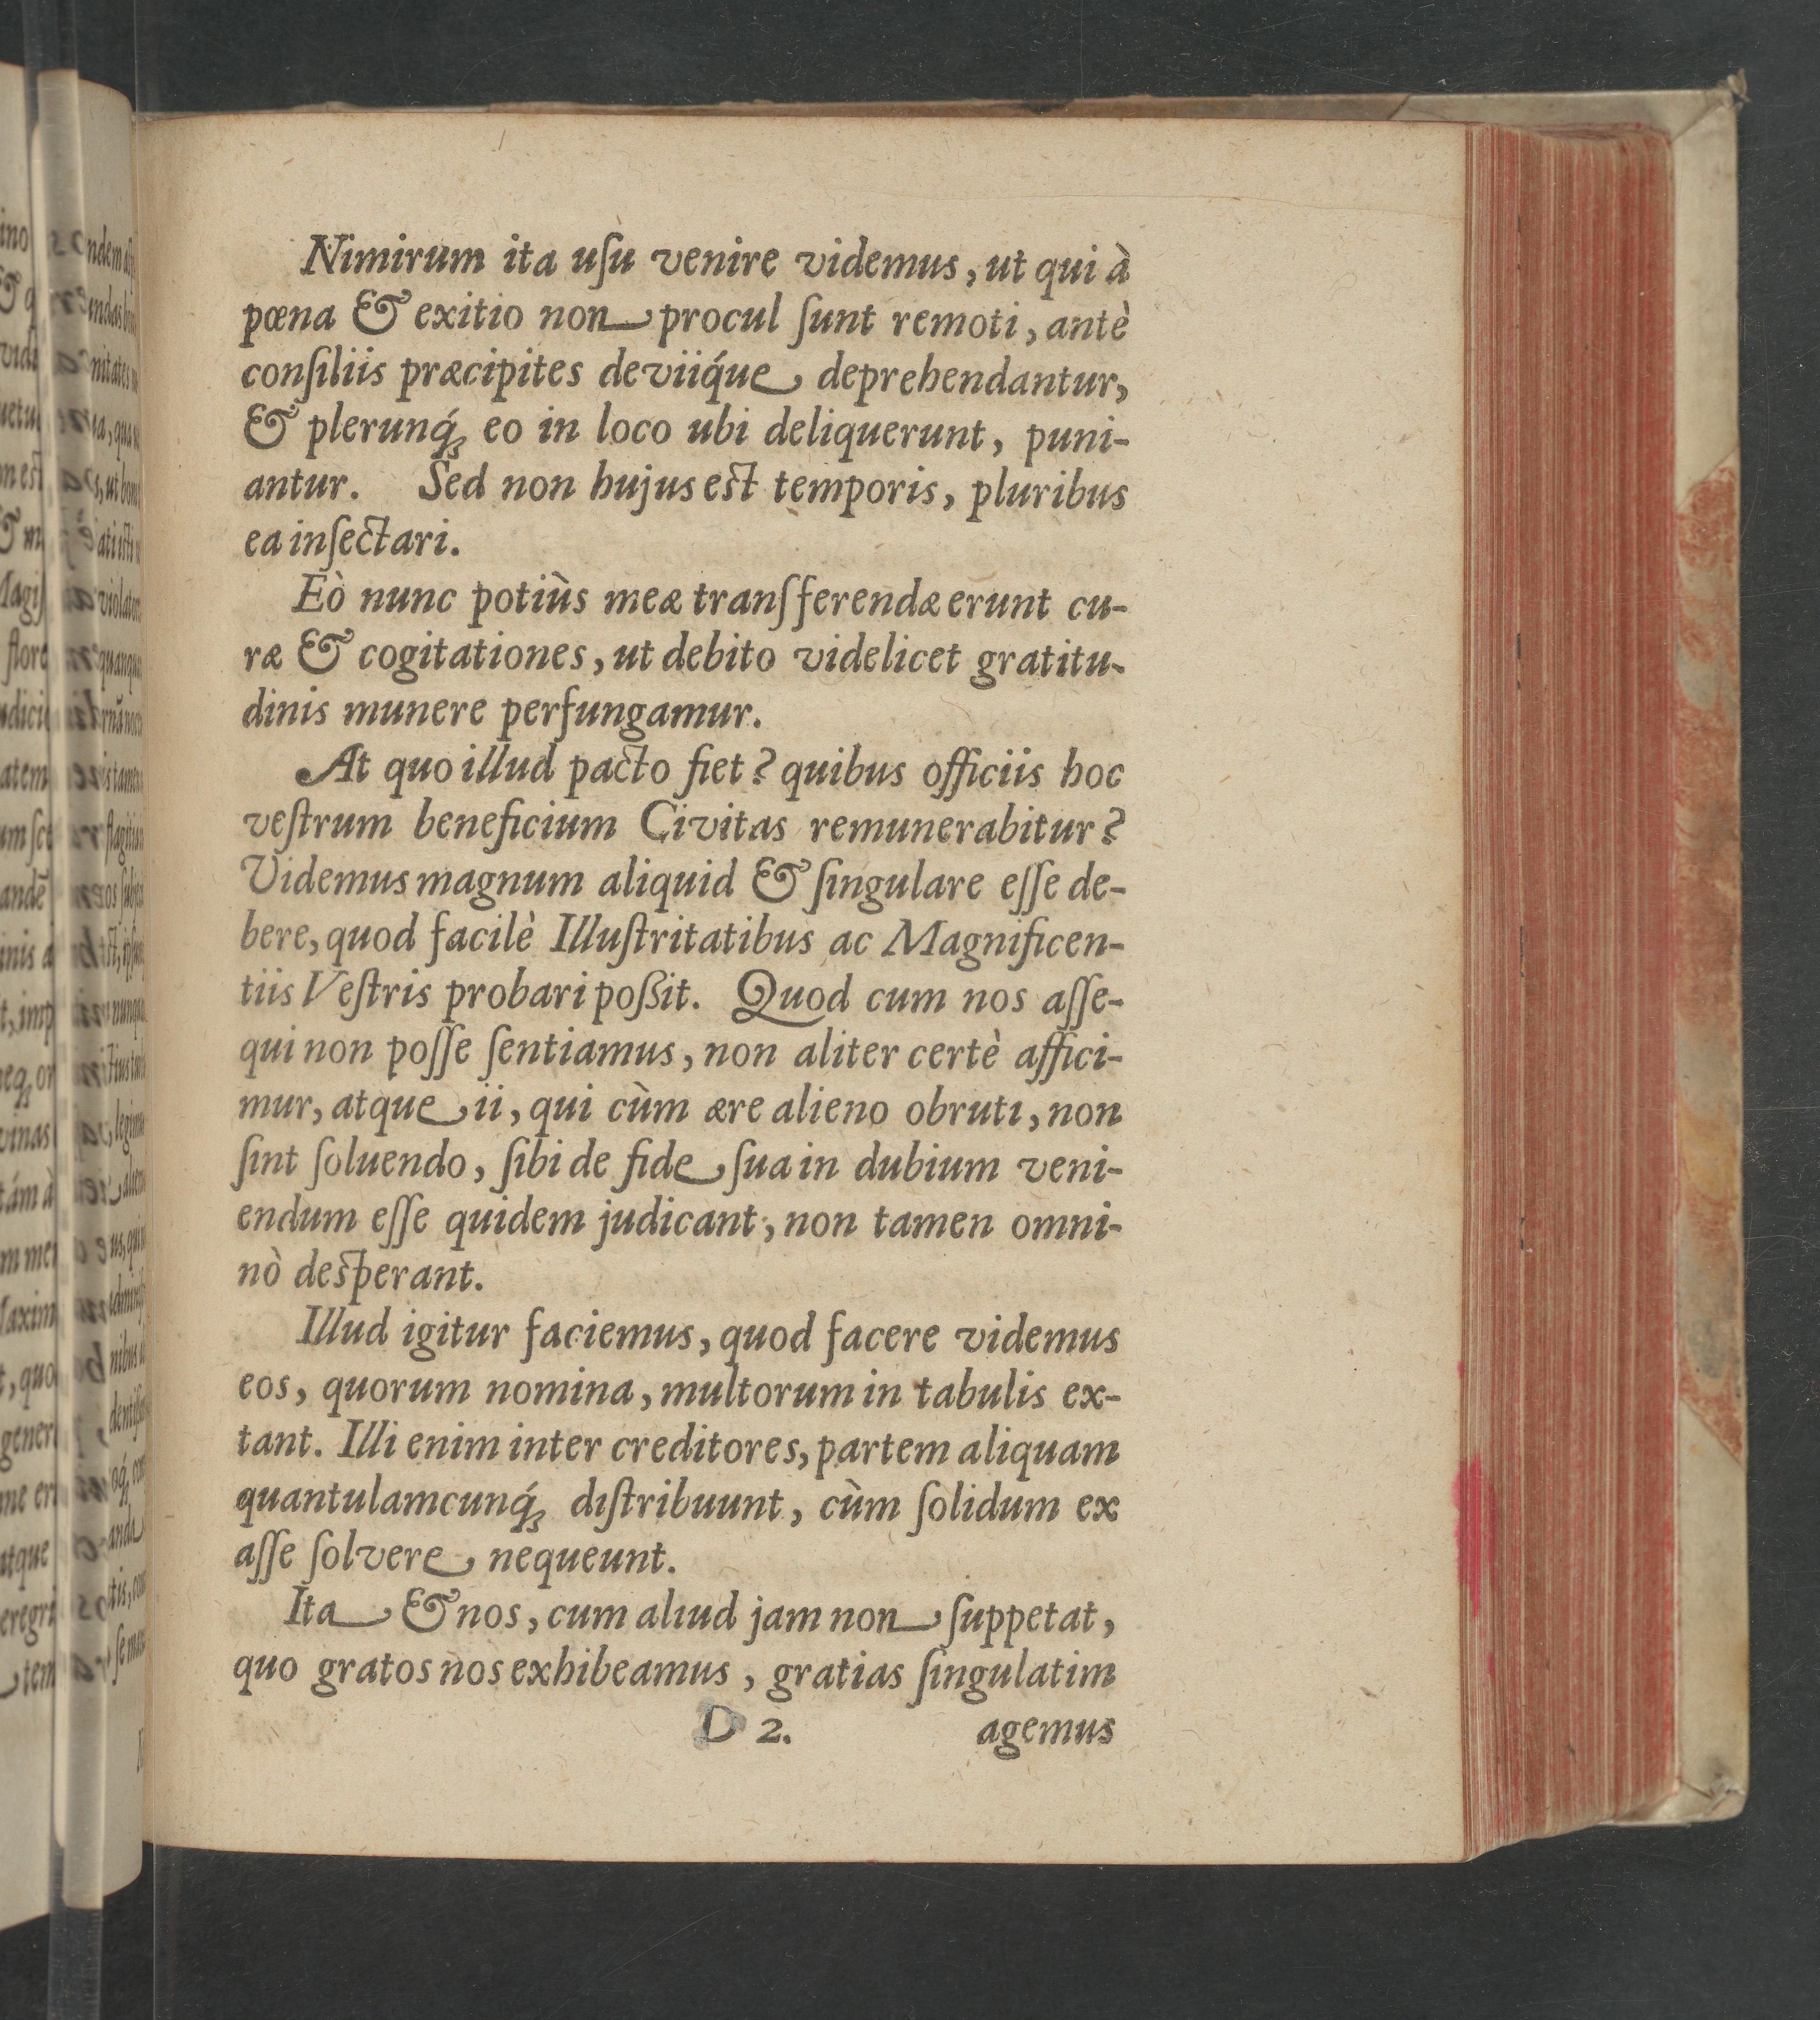 Nimirum ita uſu venire videmus, ut qui à
pœna & exitio non procul ſunt remoti, antè
conſiliis præcipites deviiq́ue deprehendantur,
& plerunq́ꝫ eo in loco ubi deliquerunt, puni-
antur. Sed non hujus est temporis, pluribus
ea inſectari.
Eò nunc potiùs meæ tranſferendæ erunt cu-
ræ & cogitationes, ut debito videlicet gratitu-
dinis munere perfungamur.
At quo illud pacto fiet? quibus officiis hoc
veſtrum beneficium Civitas remunerabitur?
Videmus magnum aliquid & ſingulare eſſe de-
bere, quod facilè Illuſtritatibus ac Magnificen-
tiis Veſtris probari poßit. Quod cum nos aſſe-
qui non poſſe ſentiamus, non aliter certè affici-
mur, atque ii, qui cùm ære alieno obruti, non
ſint ſoluendo, ſibi de fide ſua in dubium veni-
endum eſſe quidem judicant, non tamen omni-
nò desperant.
Illud igitur faciemus, quod facere videmus
eos, quorum nomina, multorum in tabulis ex-
tant. Illi enim inter creditores, partem aliquam
quantulamcunq́ꝫ diſtribuunt, cùm ſolidum ex
aſſe ſolvere nequeunt.
Ita & nos, cum aliud jam non ſuppetat,
quo gratos nos exhibeamus, gratias ſingulatim
D 2. agemus